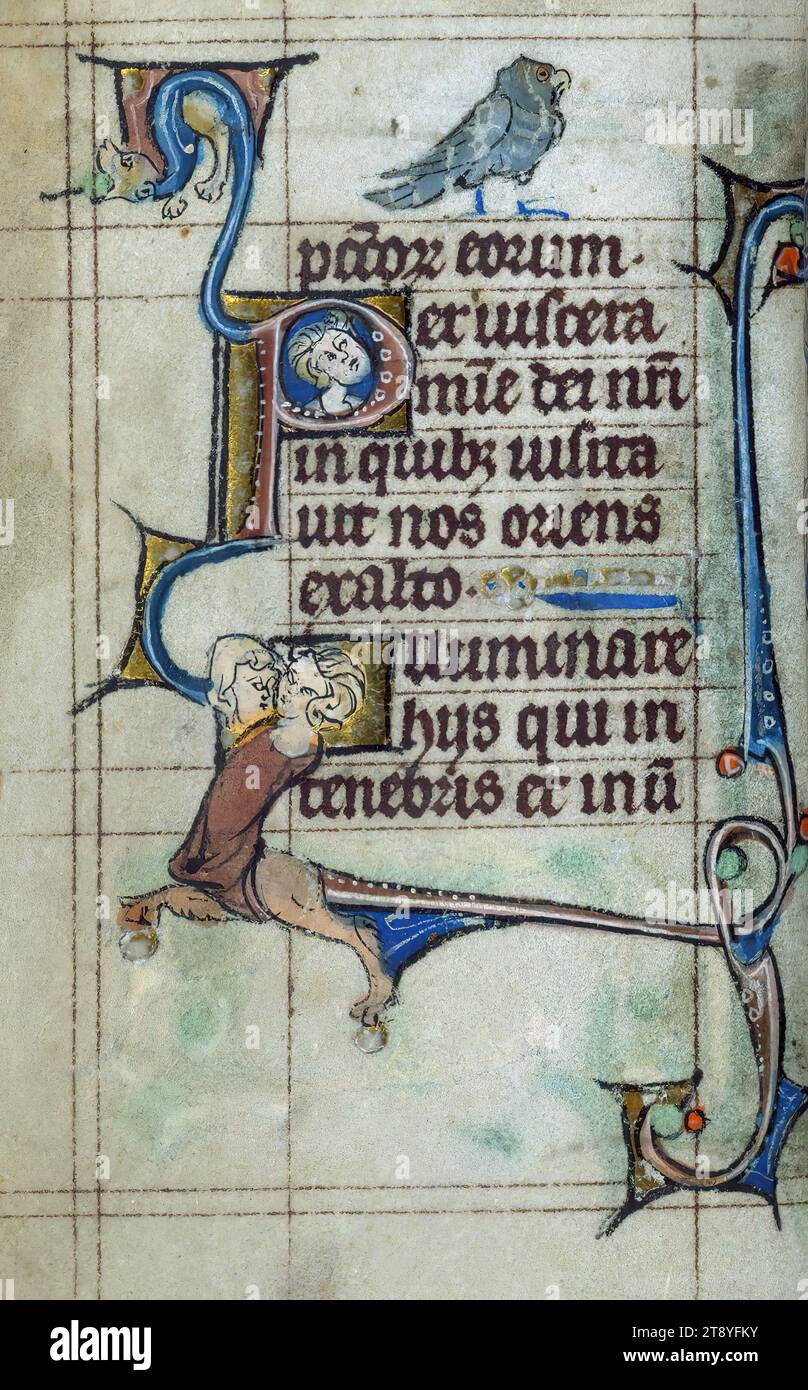 pccorz eorum.
Per uiscera
mie dei nri
in quibz uisita
uit nos oriens
exalto.
Illuminare
hijs qui in
tenebris et inu
alamy
Image ID: 2T8YFKY
www.alamy.com